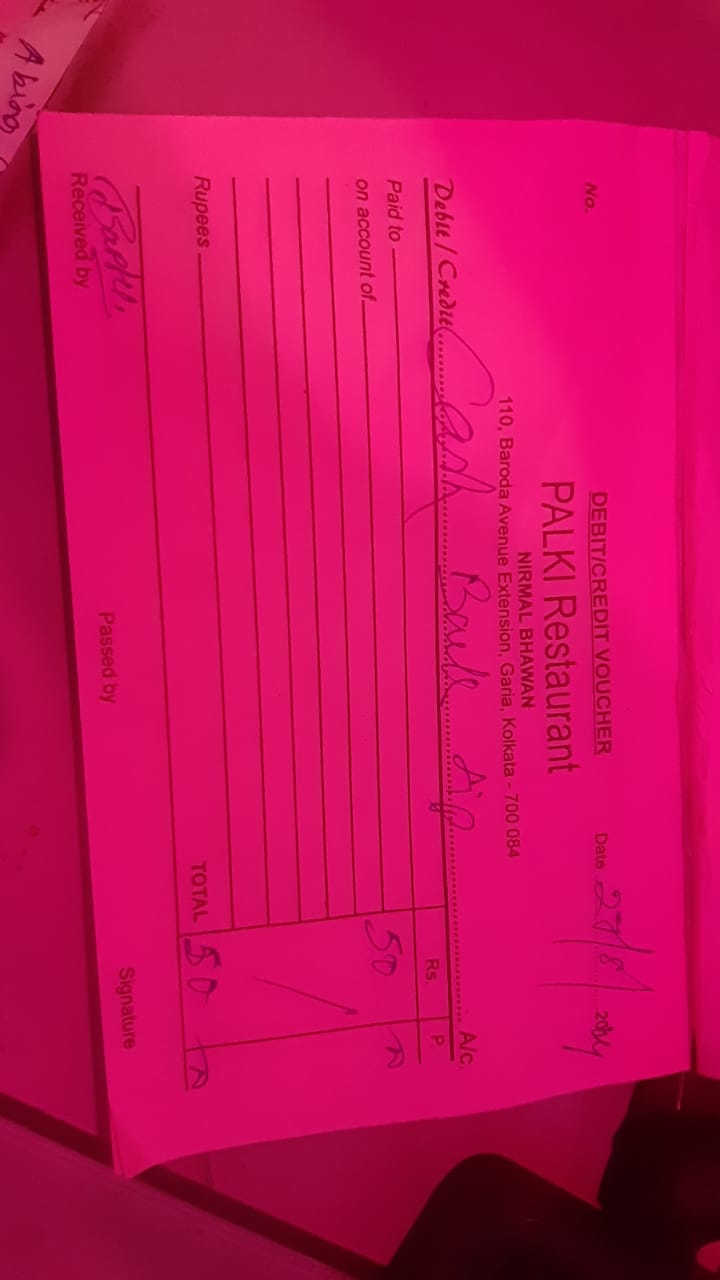 DEBIT/CREDIT VOUCHER
No.
Date 27/8/ 2024
PALKI Restaurant
NIRMAL BHAWAN
110, Baroda Avenue Extension, Garia, Kolkata - 700 084
Debit / Credit Cash A/c.
Rs. P.
Paid to 50
on account of
Rupees TOTAL 50
Received by Passed by Signature